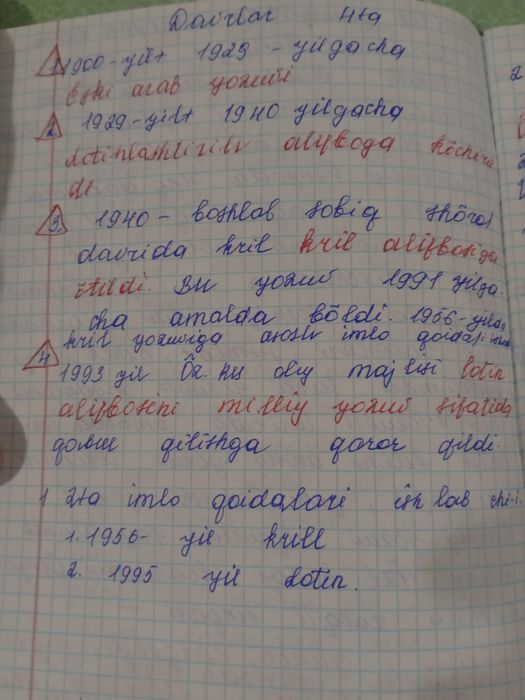 Davrlar 4ta
1 1900-yilt 1929-yilgacha
Eski arab yozuvi
2 1929-yilt 1940 yilgacha
lotinlashtirilv alifboga köchiril
di
3 1940- boshlab sobiq shöro
davrida kril kril alifbosiga
ötildi. Bu yozuv 1991 yilga
cha amalda böldi. 1956-yilda
kril yozuviga asoslv imlo qoidasi
4 1993 yil Öz. oliy majlisi lotin
alifbosini milliy yozuv sifatida
qabul qilishga qaror qildi.
1 2ta imlo qoidalari ish lab chi-i.
1. 1956- yil krill
2. 1995 yil Lotin.
2
2